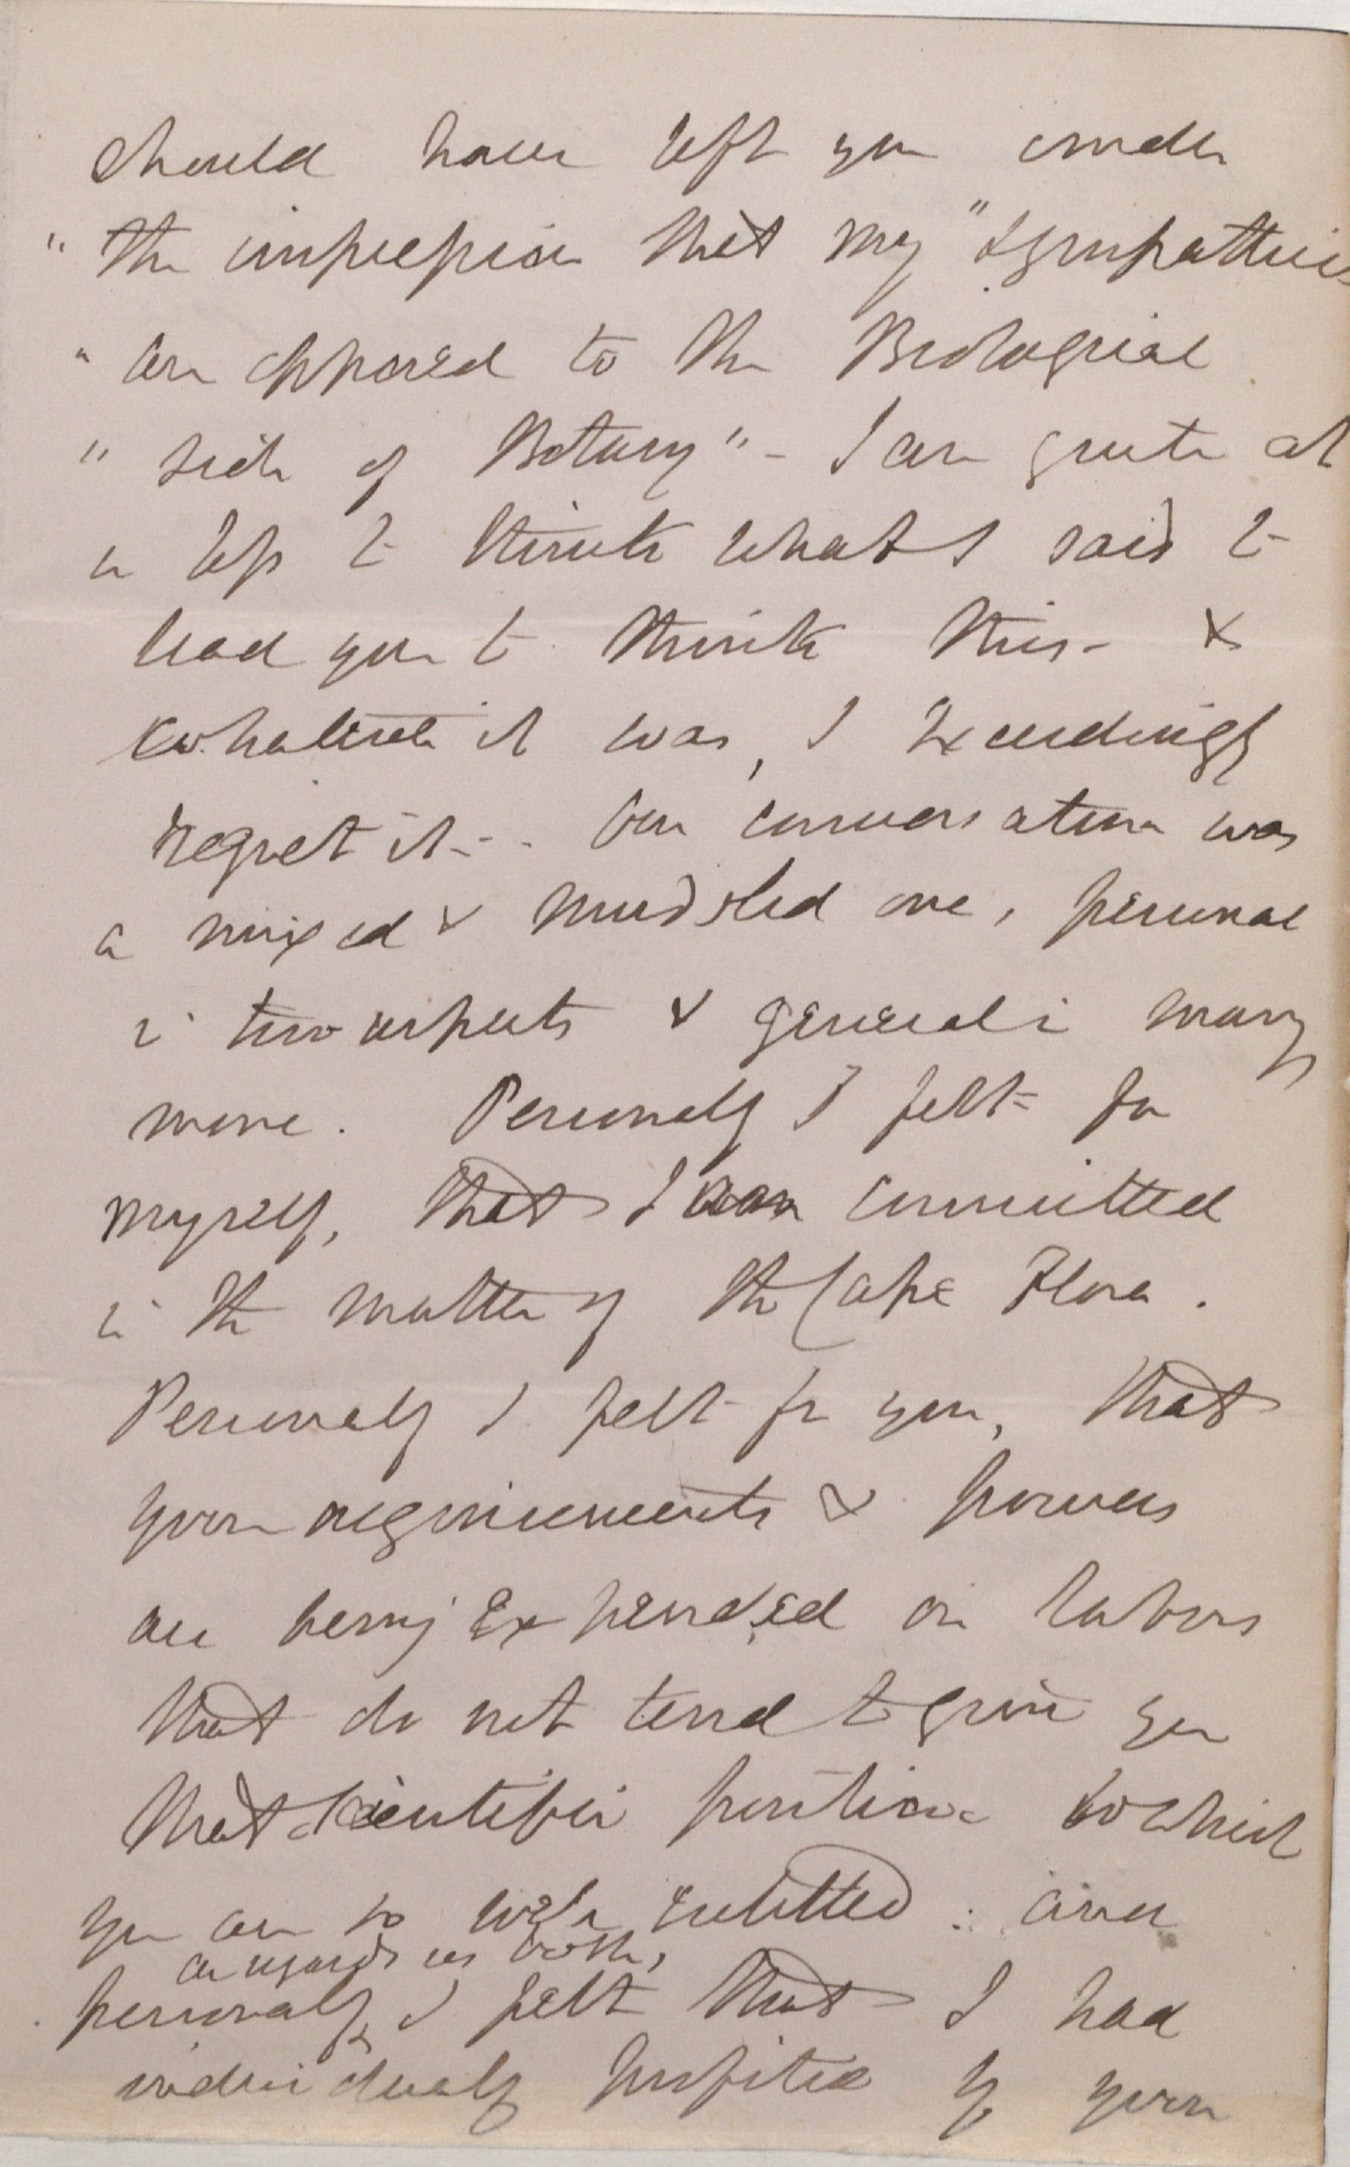 should have left you under
" the impression that my "sympathies
" are opposed to the Biological
" side of Botany" - I am quite at
a loss to think what I said to
lead you to think this - &
whatever it was, I exceedingly
regret it - - Our conversation was
a mixed & muddled one, personal
in two aspects & general in many
more. Personally I felt for
myself, that I was committed
in the matter of the Cape Flora.
Personally I felt for you, that
your acquirements & powers
are being expended on labors
that do not tend to give you
that scientific position to which
you are so well entitled : and
as regards us both,
personally I felt that I had
individually profited by your